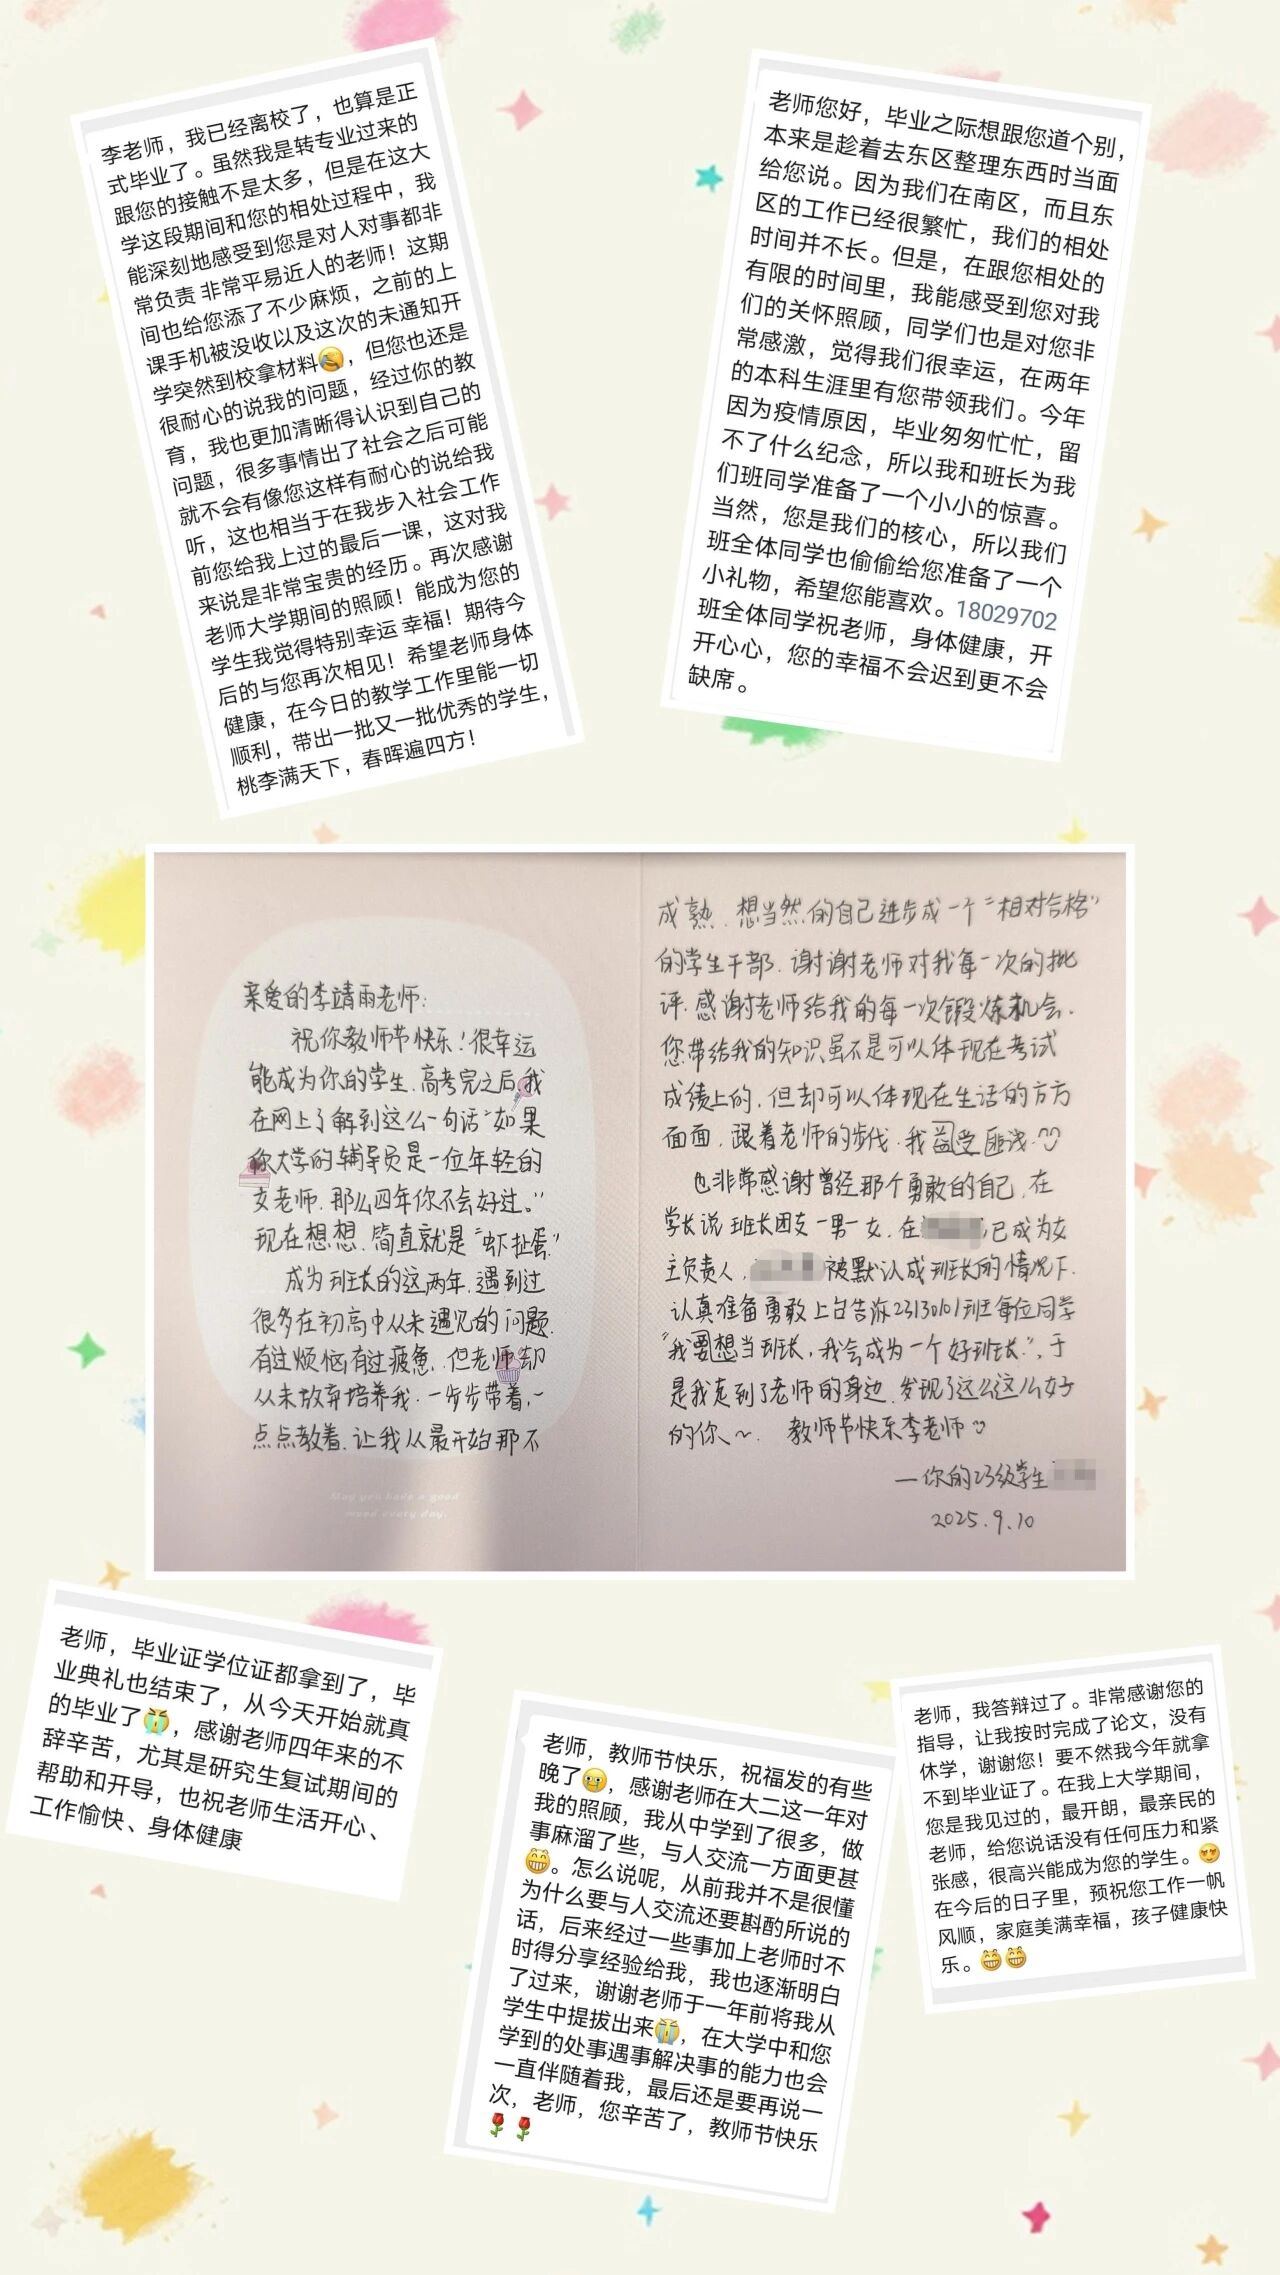 李老师，我已经离校了，也算是正
式毕业了。虽然我是转专业过来的
跟您的接触不是太多，但是在这大
学这段期间和您的相处过程中，我
能深刻地感受到您是对人对事都非
常负责 非常平易近人的老师！这期
间也给您添了不少麻烦，之前的上
课手机被没收以及这次的未通知开
学突然到校拿材料😂，但您也还是
很耐心的说我的问题，经过你的教
育，我也更加清晰得认识到自己的
问题，很多事情出了社会之后可能
就不会有像您这样有耐心的说给我
听，这也相当于在我步入社会工作
前您给我上过的最后一课，这对我
来说是非常宝贵的经历。再次感谢
老师大学期间的照顾！能成为您的
学生我觉得特别幸运 幸福！期待今
后的与您再次相见！希望老师身体
健康，在今日的教学工作里能一切
顺利，带出一批又一批优秀的学生，
桃李满天下，春晖遍四方！
老师您好，毕业之际想跟您道个别，
本来是趁着去东区整理东西时当面
给您说。因为我们在南区，而且东
区的工作已经很繁忙，我们的相处
时间并不长。但是，在跟您相处的
有限的时间里，我能感受到您对我
们的关怀照顾，同学们也是对您非
常感激，觉得我们很幸运，在两年
的本科生涯里有您带领我们。今年
因为疫情原因，毕业匆匆忙忙，留
不了什么纪念，所以我和班长为我
们班同学准备了一个小小的惊喜。
当然，您是我们的核心，所以我们
班全体同学也偷偷给您准备了一个
小礼物，希望您能喜欢。18029702
班全体同学祝老师，身体健康，开
开心心，您的幸福不会迟到更不会
缺席。
亲爱的李靖雨老师：
祝你教师节快乐！很幸运
能成为你的学生.高考完之后,我
在网上了解到这么一句话"如果
你大学的辅导员是一位年轻的
女老师.那么四年你不会好过。"
现在想想.简直就是"虾扯蛋"
成为班长的这两年.遇到过
很多在初高中从未遇见的问题.
有过烦恼有过疲惫.但老师却
从未放弃培养我.一步步带着,~
点点教着.让我从最开始那不
May you have a good
mood every day.
成熟.想当然的自己进步成一个"相对合格"
的学生干部.谢谢老师对我每一次的批
评.感谢老师给我的每一次锻炼机会.
您带给我的知识虽不是可以体现在考试
成绩上的.但却可以体现在生活的方方
面面.跟着老师的步伐.我益受匪浅.
也非常感谢曾经那个勇敢的自己.在
学长说班长团支一男一女.在已成为女
主负责人,被默认成班长的情况下.
认真准备勇敢上台告诉23130101班每位同学
"我要想当班长,我会成为一个好班长.",于
是我走到了老师的身边.发现了这么这么好
的你~. 教师节快乐李老师
—你的23级学生
2025.9.10
老师，毕业证学位证都拿到了，毕
业典礼也结束了，从今天开始就真
的毕业了😭，感谢老师四年来的不
辞辛苦，尤其是研究生复试期间的
帮助和开导，也祝老师生活开心、
工作愉快、身体健康
老师，教师节快乐，祝福发的有些
晚了😂，感谢老师在大二这一年对
我的照顾，我从中学到了很多，做
事麻溜了些，与人交流一方面更甚
😁。怎么说呢，从前我并不是很懂
为什么要与人交流还要斟酌所说的
话，后来经过一些事加上老师时不
时得分享经验给我，我也逐渐明白
了过来，谢谢老师于一年前将我从
学生中提拔出来😭，在大学中和您
学到的处事遇事解决事的能力也会
一直伴随着我，最后还是要再说一
次，老师，您辛苦了，教师节快乐
🌹🌹
老师，我答辩过了。非常感谢您的
指导，让我按时完成了论文，没有
休学，谢谢您！要不然我今年就拿
不到毕业证了。在我上大学期间，
您是我见过的，最开朗，最亲民的
老师，给您说话没有任何压力和紧
张感，很高兴能成为您的学生。😍
在今后的日子里，预祝您工作一帆
风顺，家庭美满幸福，孩子健康快
乐。😁😁